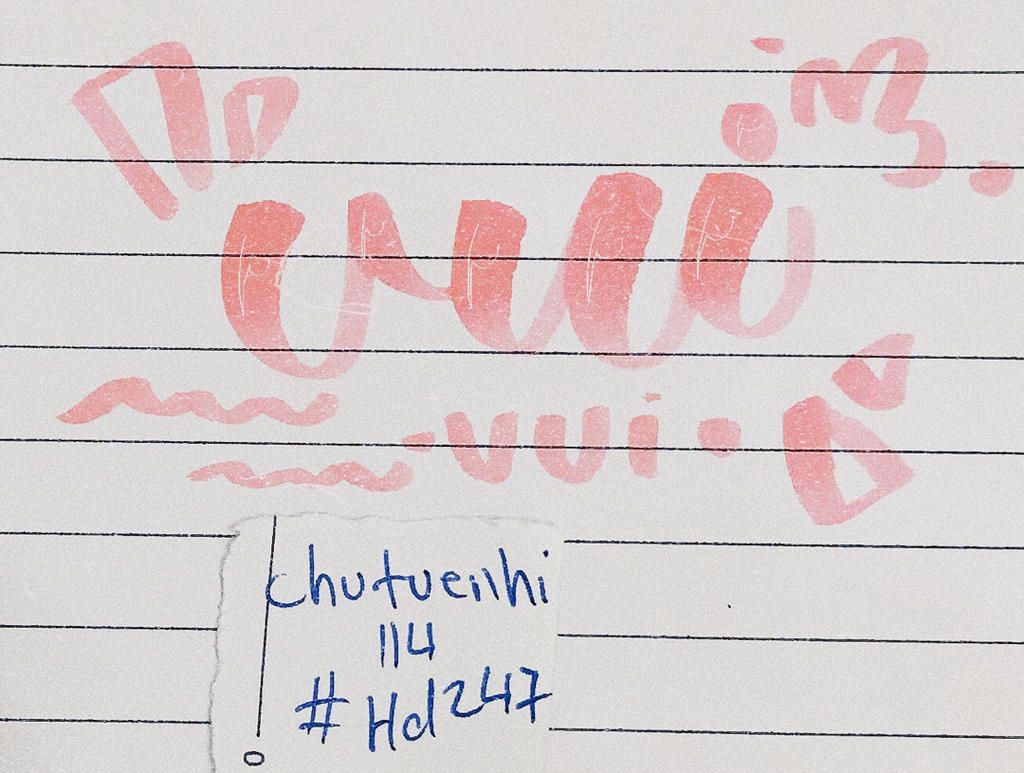 vui
vui
chutuenhi
114
#Hd247